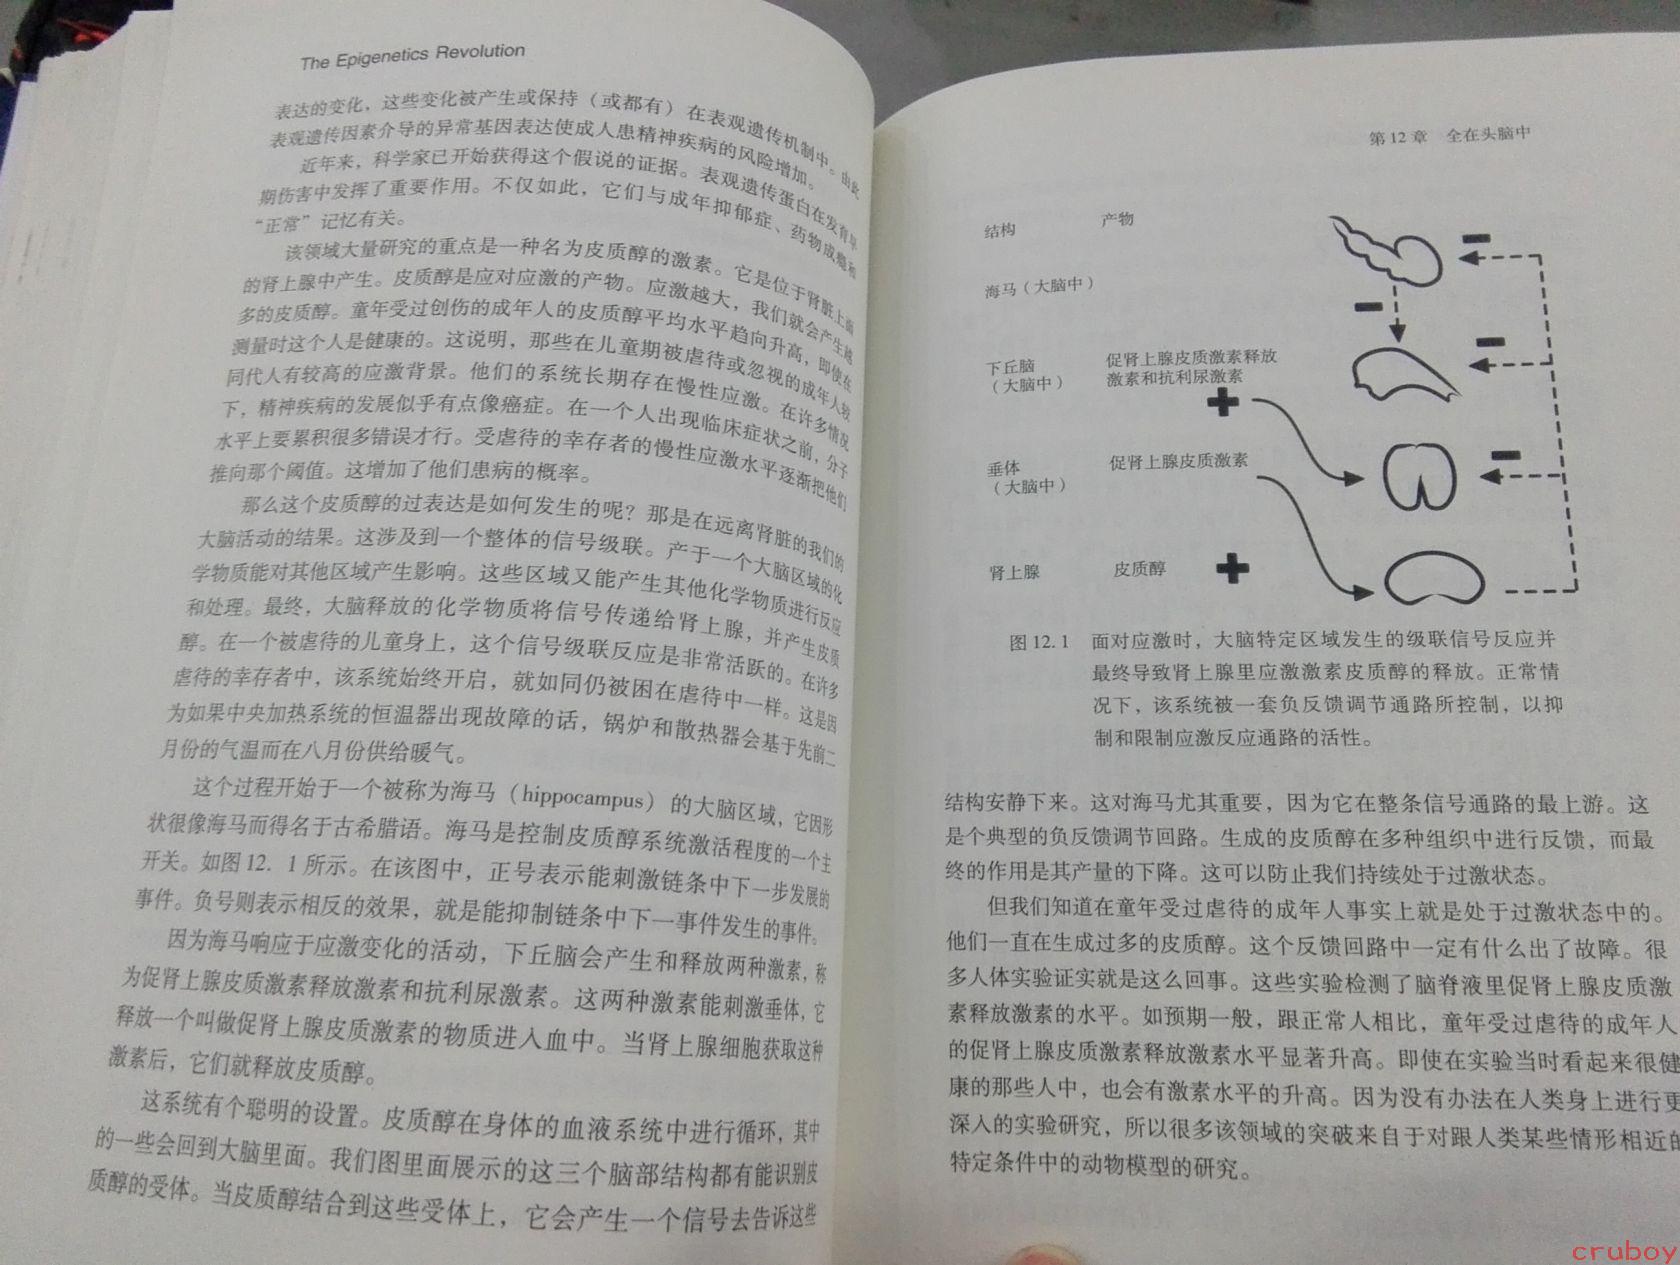 The Epigenetics Revolution
表达的变化，这些变化被产生或保持（或都有）在表观遗传机制中。由此
表观遗传因素介导的异常基因表达使成人患精神疾病的风险增加。
近年来，科学家已开始获得这个假说的证据。表观遗传蛋白在发育早
期伤害中发挥了重要作用。不仅如此，它们与成年抑郁症、药物成瘾和
“正常”记忆有关。
该领域大量研究的重点是一种名为皮质醇的激素。它是位于肾脏上面
的肾上腺中产生。皮质醇是应对应激的产物。应激越大，我们就会产生越
多的皮质醇。童年受过创伤的成年人的皮质醇平均水平趋向升高，即使在
测量时这个人是健康的。这说明，那些在儿童期被虐待或忽视的成年人较
同代人有较高的应激背景。他们的系统长期存在慢性应激。在许多情况
下，精神疾病的发展似乎有点像癌症。在一个人出现临床症状之前，分子
水平上要累积很多错误才行。受虐待的幸存者的慢性应激水平逐渐把他们
推向那个阈值。这增加了他们患病的概率。
那么这个皮质醇的过表达是如何发生的呢？那是在远离肾脏的我们的
大脑活动的结果。这涉及到一个整体的信号级联。产于一个大脑区域的化
学物质能对其他区域产生影响。这些区域又能产生其他化学物质进行反应
和处理。最终，大脑释放的化学物质将信号传递给肾上腺，并产生皮质
醇。在一个被虐待的儿童身上，这个信号级联反应是非常活跃的。在许多
虐待的幸存者中，该系统始终开启，就如同仍被困在虐待中一样。这是因
为如果中央加热系统的恒温器出现故障的话，锅炉和散热器会基于先前二
月份的气温而在八月份供给暖气。
这个过程开始于一个被称为海马（hippocampus）的大脑区域，它因形
状很像海马而得名于古希腊语。海马是控制皮质醇系统激活程度的一个主
开关。如图12．1所示。在该图中，正号表示能刺激链条中下一步发展的
事件。负号则表示相反的效果，就是能抑制链条中下一事件发生的事件。
因为海马响应于应激变化的活动，下丘脑会产生和释放两种激素，称
为促肾上腺皮质激素释放激素和抗利尿激素。这两种激素能刺激垂体，它
释放一个叫做促肾上腺皮质激素的物质进入血中。当肾上腺细胞获取这种
激素后，它们就释放皮质醇。
这系统有个聪明的设置。皮质醇在身体的血液系统中进行循环，其中
的一些会回到大脑里面。我们图里面展示的这三个脑部结构都有能识别皮
质醇的受体。当皮质醇结合到这些受体上，它会产生一个信号去告诉这些
第12章 全在头脑中
结构 产物
海马（大脑中）
下丘脑 促肾上腺皮质激素释放
（大脑中） 激素和抗利尿激素
垂体 促肾上腺皮质激素
（大脑中）
肾上腺 皮质醇
图12.1 面对应激时，大脑特定区域发生的级联信号反应并
最终导致肾上腺里应激激素皮质醇的释放。正常情
况下，该系统被一套负反馈调节通路所控制，以抑
制和限制应激反应通路的活性。
结构安静下来。这对海马尤其重要，因为它在整条信号通路的最上游。这
是个典型的负反馈调节回路。生成的皮质醇在多种组织中进行反馈，而最
终的作用是其产量的下降。这可以防止我们持续处于过激状态。
但我们知道在童年受过虐待的成年人事实上就是处于过激状态中的。
他们一直在生成过多的皮质醇。这个反馈回路中一定有什么出了故障。很
多人体实验证实就是这么回事。这些实验检测了脑脊液里促肾上腺皮质激
素释放激素的水平。如预期一般，跟正常人相比，童年受过虐待的成年人
的促肾上腺皮质激素释放激素水平显著升高。即使在实验当时看起来很健
康的那些人中，也会有激素水平的升高。因为没有办法在人类身上进行更
深入的实验研究，所以很多该领域的突破来自于对跟人类某些情形相近的
特定条件中的动物模型的研究。
cruboy